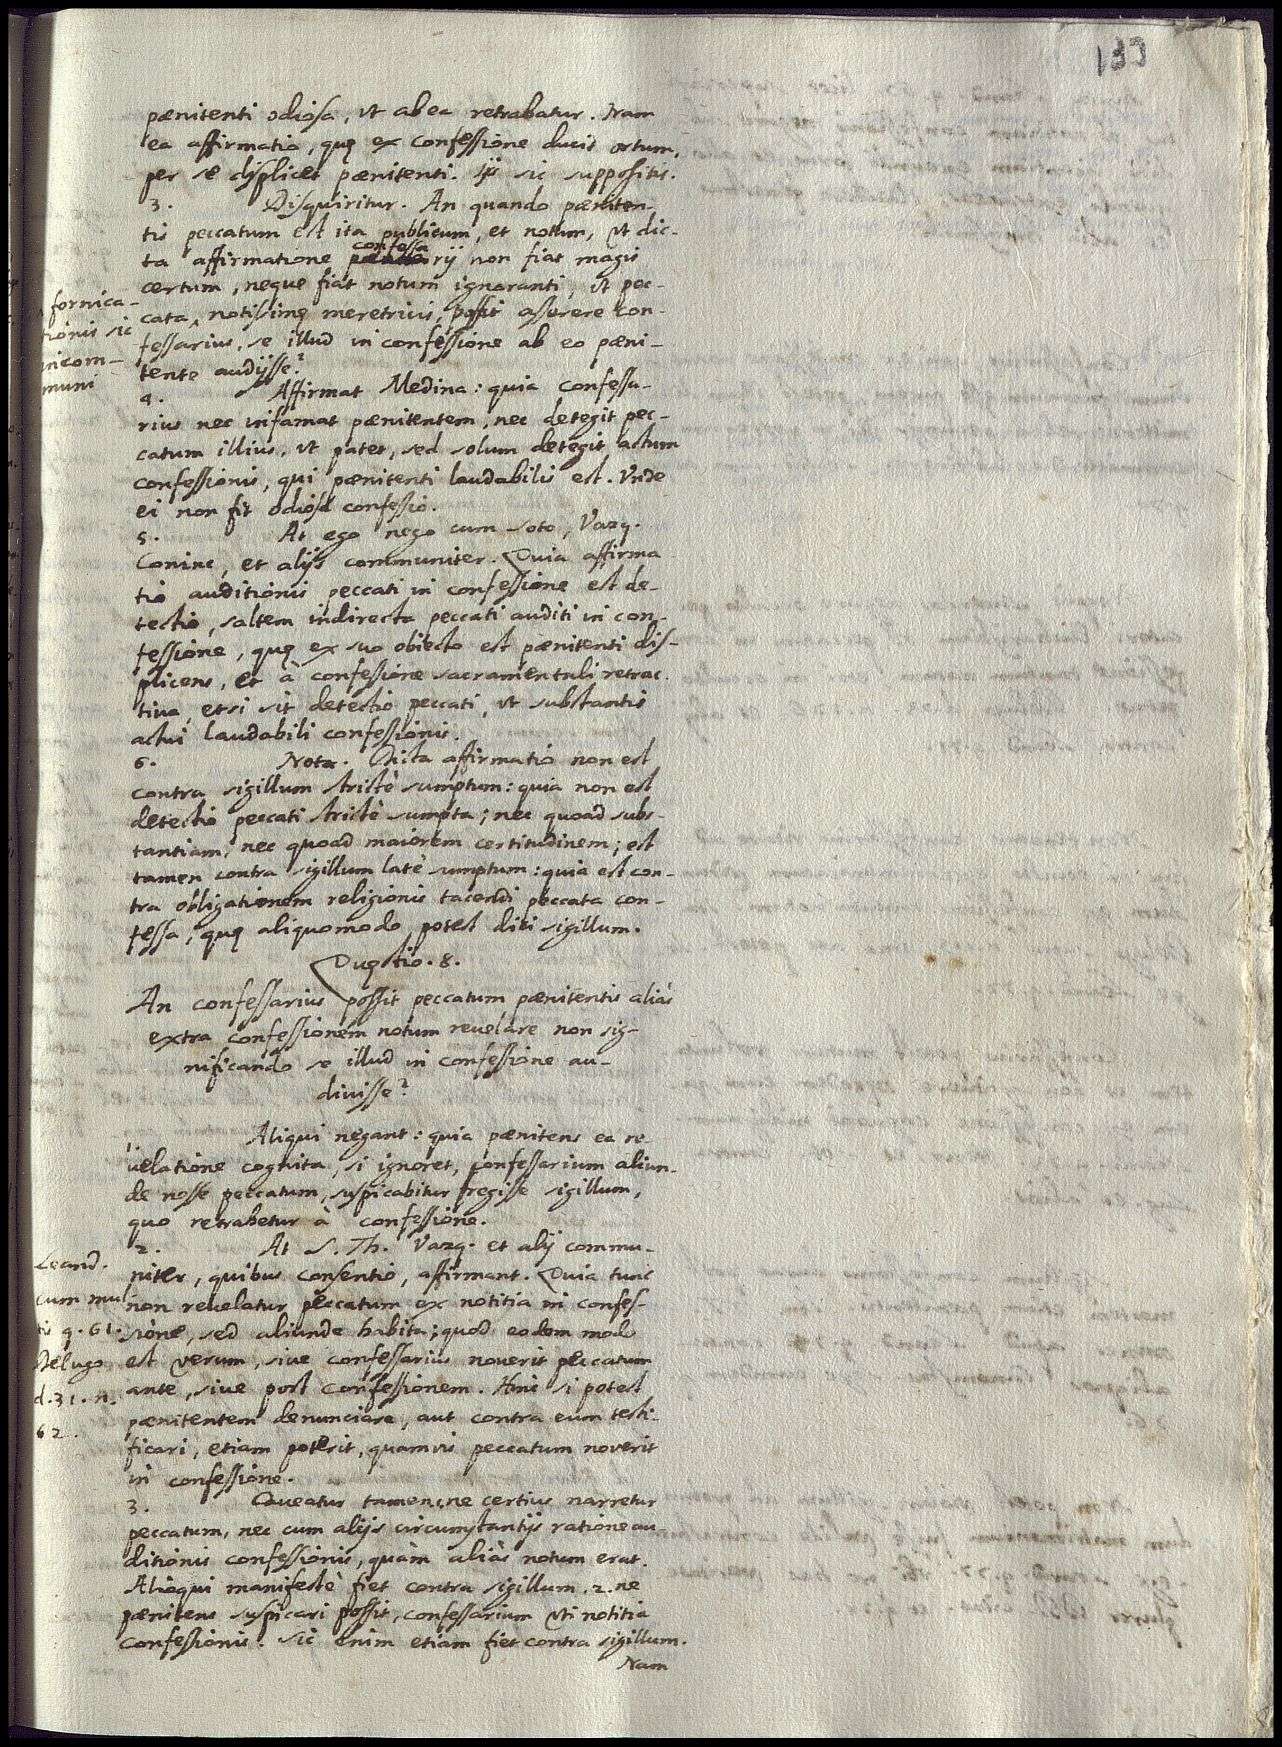 139
pænitenti odiosa, vt ab ea retrahatur. Nam
ea affirmatio, quę ex confessione ducit ortum,
per se displicet pænitenti. Ijs sic suppositis.
3. Disquiritur. An quando pæniten-
tis peccatum est ita publicum, et notum, vt dic-
ta affirmatione confessarij non fiat magis
certum, neque fiat notum ignoranti, vt pec-
cata ^ notissimę meretricis, possit asserere con-
fessarius, se illud in confessione ab eo pæni-
tente audijsse?
fornica-
tionis sic
in com-
muni
4. Affirmat Medina: quia confessa-
rius nec infamat pænitentem, nec detegit pec-
catum illius, vt patet, sed solum detegit actum
confessionis, qui pænitenti laudabilis est. Vnde
ei non fit odiosa confessio.
5. At ego nego cum Soto, Vazq.
Coninc, et alijs communiter. Quia affirma
tio auditionis peccati in confessione est de-
tectio, saltem indirecta peccati auditi in con-
fessione, quę ex suo obiecto est pænitenti dis-
plicens, et à confessione sacramentali retrac
tiua, etsi sit detectio peccati, vt substantis
actui laudabili confessionis.
6. Nota. Dicta affirmatio non est
contra sigillum strictè sumptum: quia non est
detectio peccati strictè sumpta; nec quoad subs-
tantiam, nec quoad maiorem certitudinem; est
tamen contra sigillum latè sumptum: quia est con-
tra obligationem religionis tacendi peccata con-
fessa, quę aliquomodo potest dici sigillum.
Quęstio. 8.
An confessarius possit peccatum pænitentis aliàs
extra confessionem notum reuelare non sig-
nificando se illud in confessione au-
diuisse?
1. Aliqui negant: quia pænitens ea re
uelatione cognita, si ignoret, confessarium aliun-
de nosse peccatum, suspicabitur fregisse sigillum,
quo retrahetur à confessione.
2. At S. Th. Vazq. et alij commu-
niter, quibus consentio, affirmant. Quia tunc
non reuelatur peccatum ex notitia in confes-
sione, sed aliunde habita; quod eodem modo
est verum, siue confessarius nouerit peccatum
ante, siue post confessionem. Hinc si potest
pænitentem denunciare, aut contra eum testi-
ficari, etiam poterit, quamuis peccatum noverit
in confessione.
Leand.
cum mul-
tis q. 61.
Delugo
d. 31. n.
62.
3. Caveatur tamen, ne certius narretur
peccatum, nec cum alijs circumstantijs ratione au
ditionis confessionis, quàm aliàs notum erat.
Alioqui manifestè fiet contra sigillum. 2. ne
pænitens suspicari possit, confessarium vti notitia
confessionis. Sic enim etiam fiet contra sigillum.
Nam